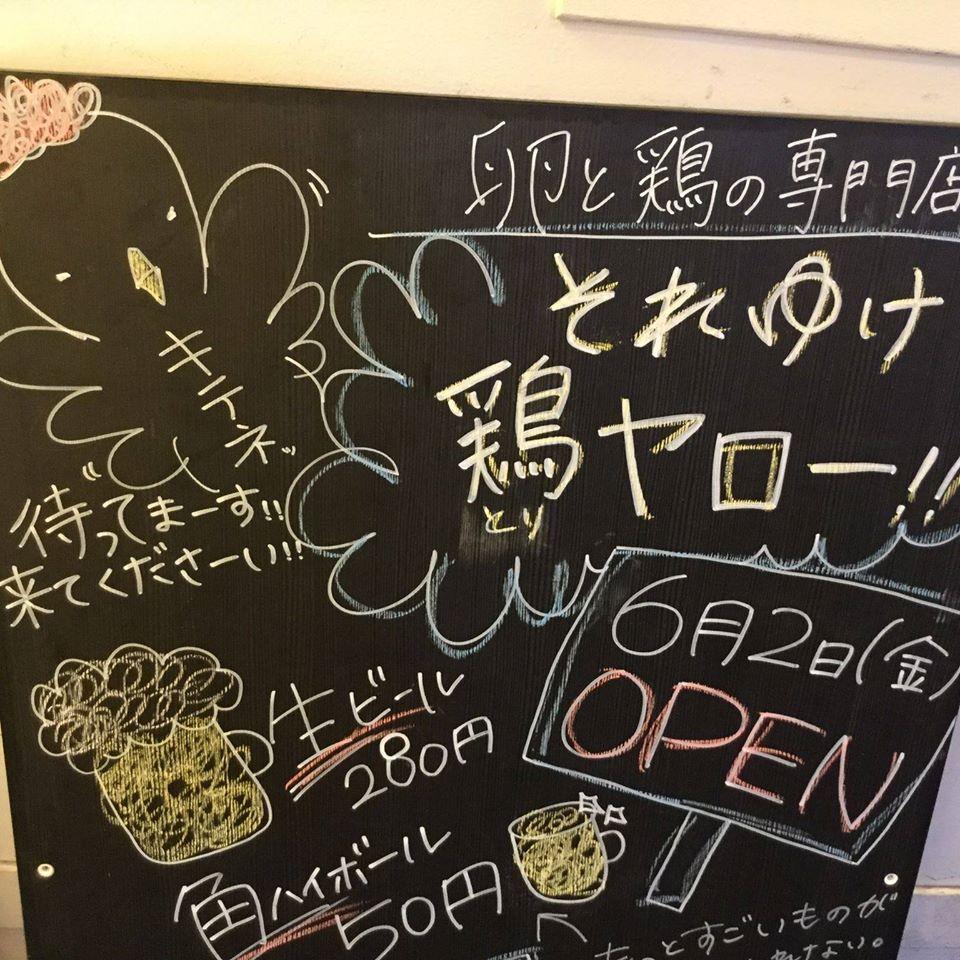 卵と鶏の専門店
それゆけ
鶏ヤロー!!
とり
キテネッ
待ってまーす!!
来てくださーい!!
6月2日(金)
OPEN
生ビール
280円
角ハイボール
50円
もっとすごいものが
れない。